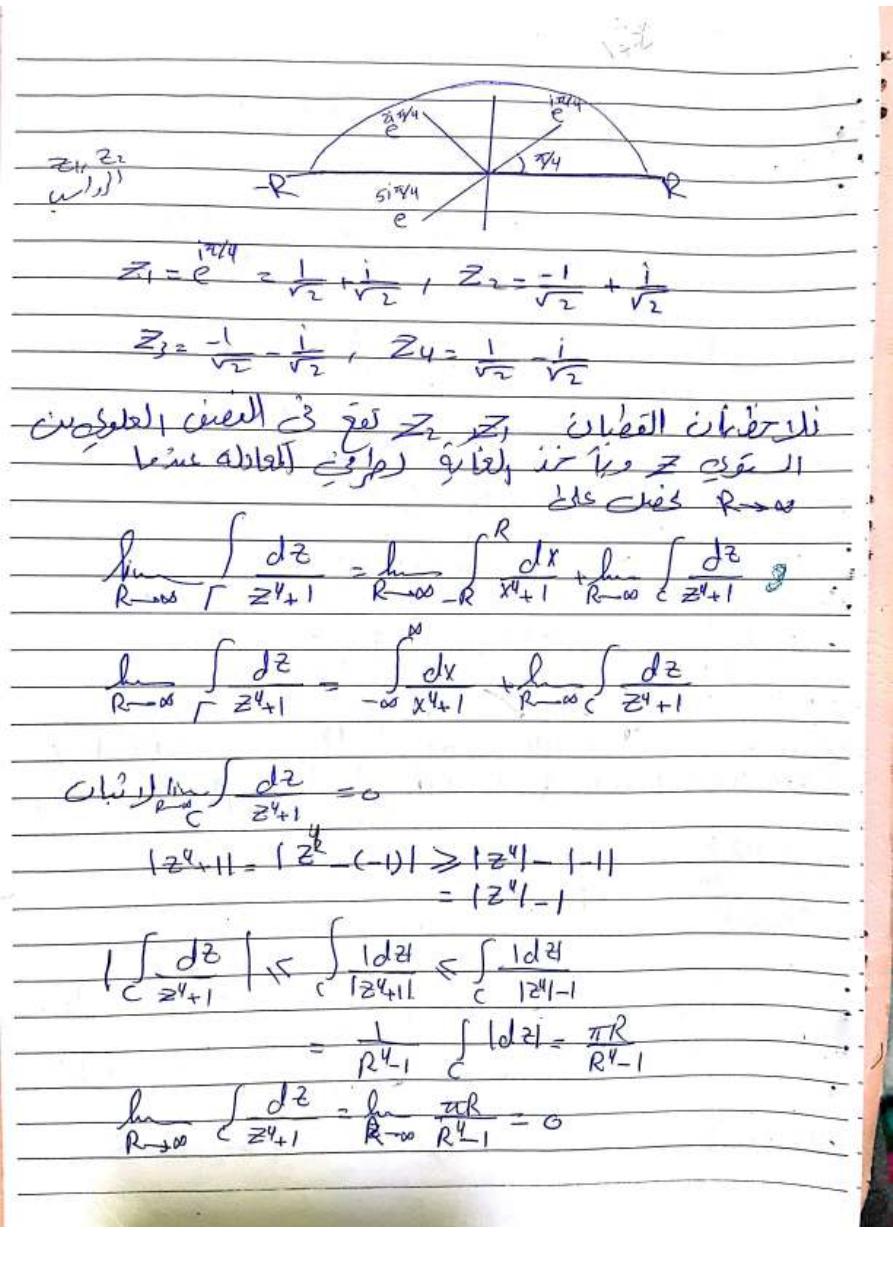 e^{2iπ/4} e^{iπ/4}
z₁, z₂ π/4
-R R
e^{5iπ/4}
Z₁ = e^{iπ/4} = 1/√2 + i/√2 , Z₂ = -1/√2 + i/√2
Z₃ = -1/√2 - i/√2 , Z₄ = 1/√2 - i/√2
نلاحظ بأن القطبان Z₁ و Z₂ تقع في النصف العلوي من
المستوي Z وبأخذ الغاية لطرفي المعادلة عندما
R→∞ نحصل على
lim_{R→∞} ∫_Γ dz/(z⁴+1) = lim_{R→∞} ∫_{-R}^{R} dx/(x⁴+1) + lim_{R→∞} ∫_C dz/(z⁴+1)
lim_{R→∞} ∫_Γ dz/(z⁴+1) = ∫_{-∞}^{∞} dx/(x⁴+1) + lim_{R→∞} ∫_C dz/(z⁴+1)
لاثبات lim_{R→∞} ∫_C dz/(z⁴+1) = 0
|z⁴+1| = |z⁴-(-1)| ≥ |z⁴| - |-1|
= |z⁴| - 1
|∫_C dz/(z⁴+1)| ≤ ∫_C |dz|/|z⁴+1| ≤ ∫_C |dz|/(|z⁴|-1)
= 1/(R⁴-1) ∫_C |dz| = πR/(R⁴-1)
lim_{R→∞} ∫_C dz/(z⁴+1) = lim_{R→∞} πR/(R⁴-1) = 0